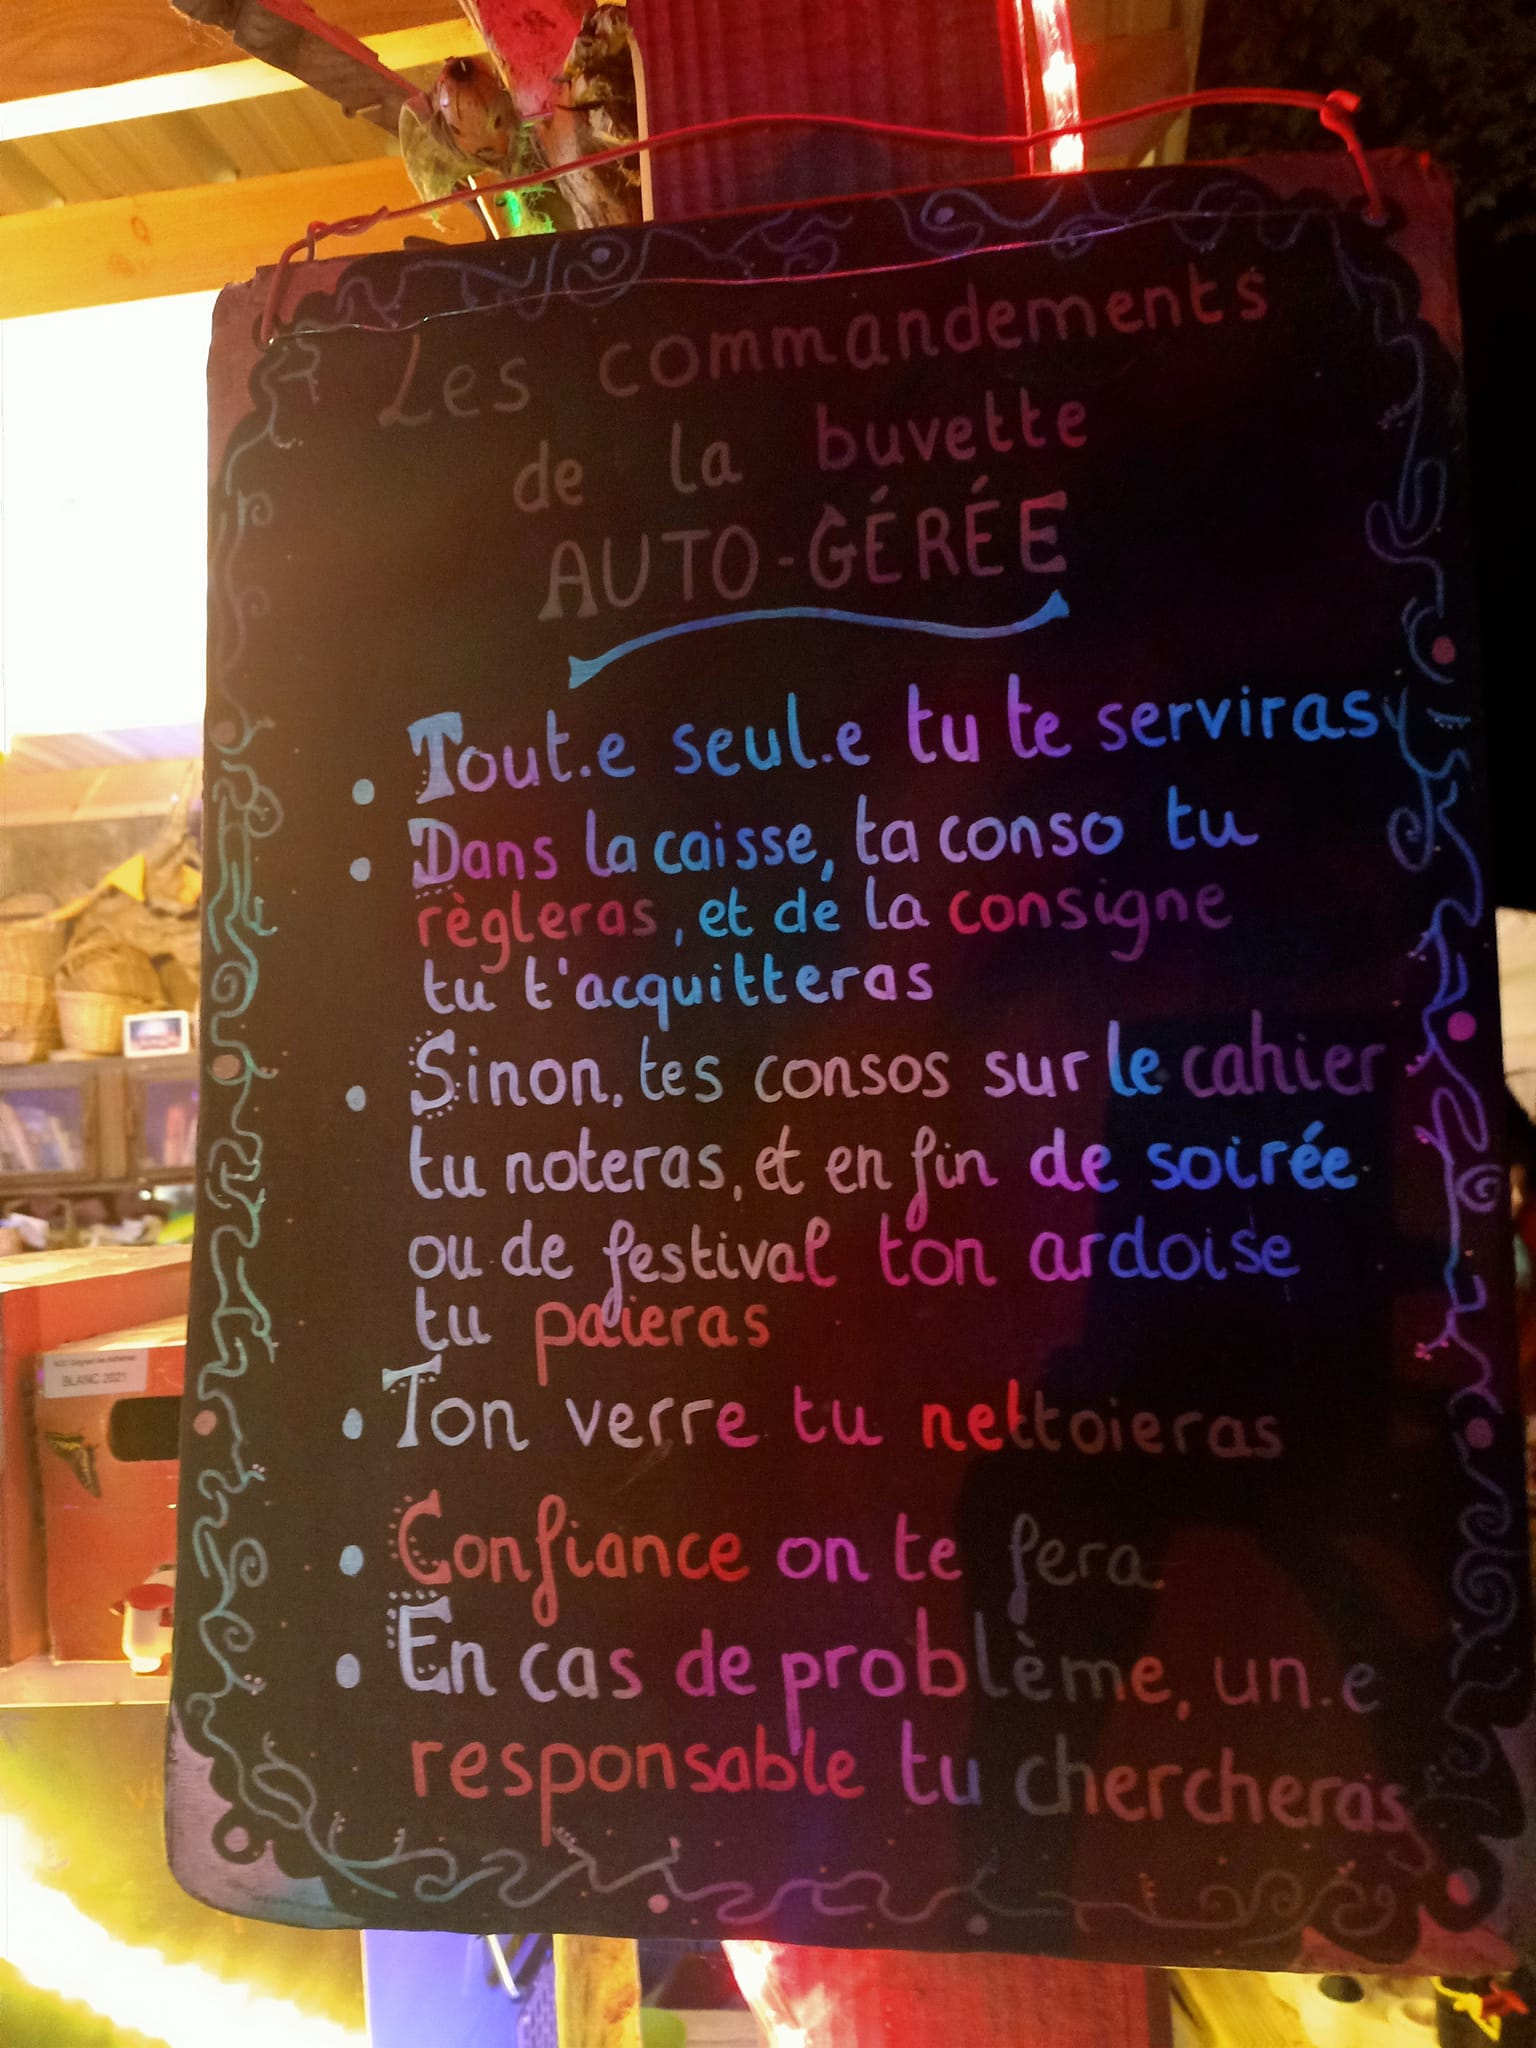 Les commandements
de la buvette
AUTO-GÉRÉE
• Tout.e seul.e tu te serviras
• Dans la caisse, ta conso tu
règleras, et de la consigne
tu t'acquitteras
• Sinon, tes consos sur le cahier
tu noteras, et en fin de soirée
ou de festival ton ardoise
tu paieras
• Ton verre tu nettoieras
• Confiance on te fera
• En cas de problème, un.e
responsable tu chercheras
BLANC 2021